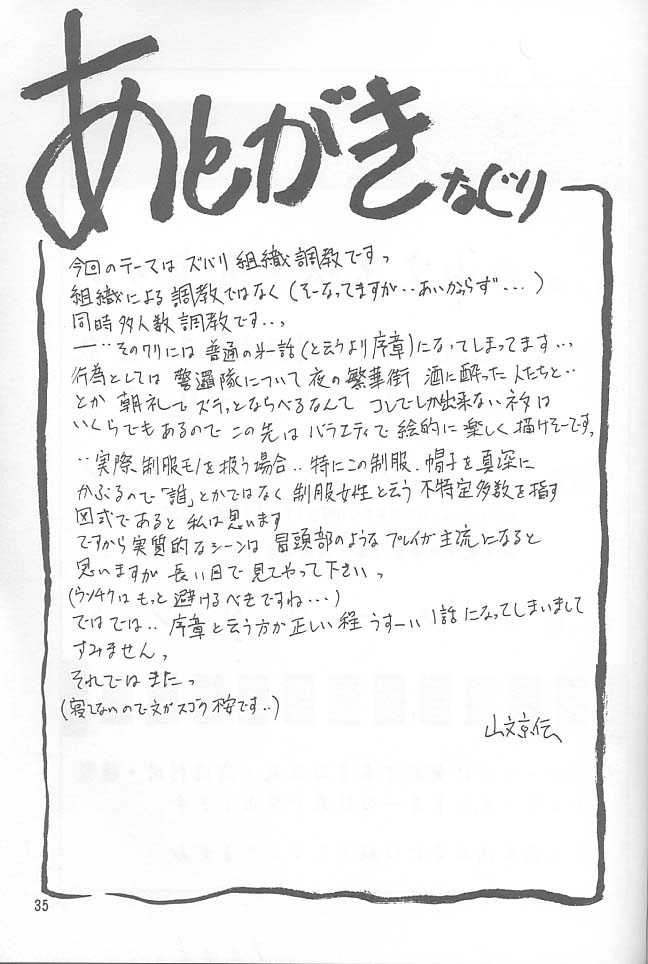 あとがき なぐり
今回のテーマは ズバリ 組織調教ですっ
組織による 調教ではなく(そーなってますが‥あいかわらず‥・)
同時多人数調教です‥っ
一‥そのワリには 普通の第一話(と云うより序章)になってしまってます‥っ
行為としては 警邏隊について 夜の繁華街 酒に酔った人たちと‥
とか 朝礼で ズラっとならべるなんて コレでしか出来ないネタは
いくらでもあるので この先は バラエティで 絵的に 楽しく 描けそーですっ
‥実際、制服モノを扱う場合‥特にこの制服、帽子を真深に
かぶるので「誰」とかではなく 制服女性と云う 不特定多数を指す
図式であると 私は思います
ですから実質的なシーンは 冒頭部のような プレイが主流になると
思いますが 長い目で見てやって下さいっ
(ウンチクは もっと 避けるべきですね・・・)
ではでは‥ 序章と云う方が正しい程 うすーいい 1話になってしまいまして
すみませんっ
それでは またっ
(寝てないので 文がスゴク不安です‥)
山文京伝
35